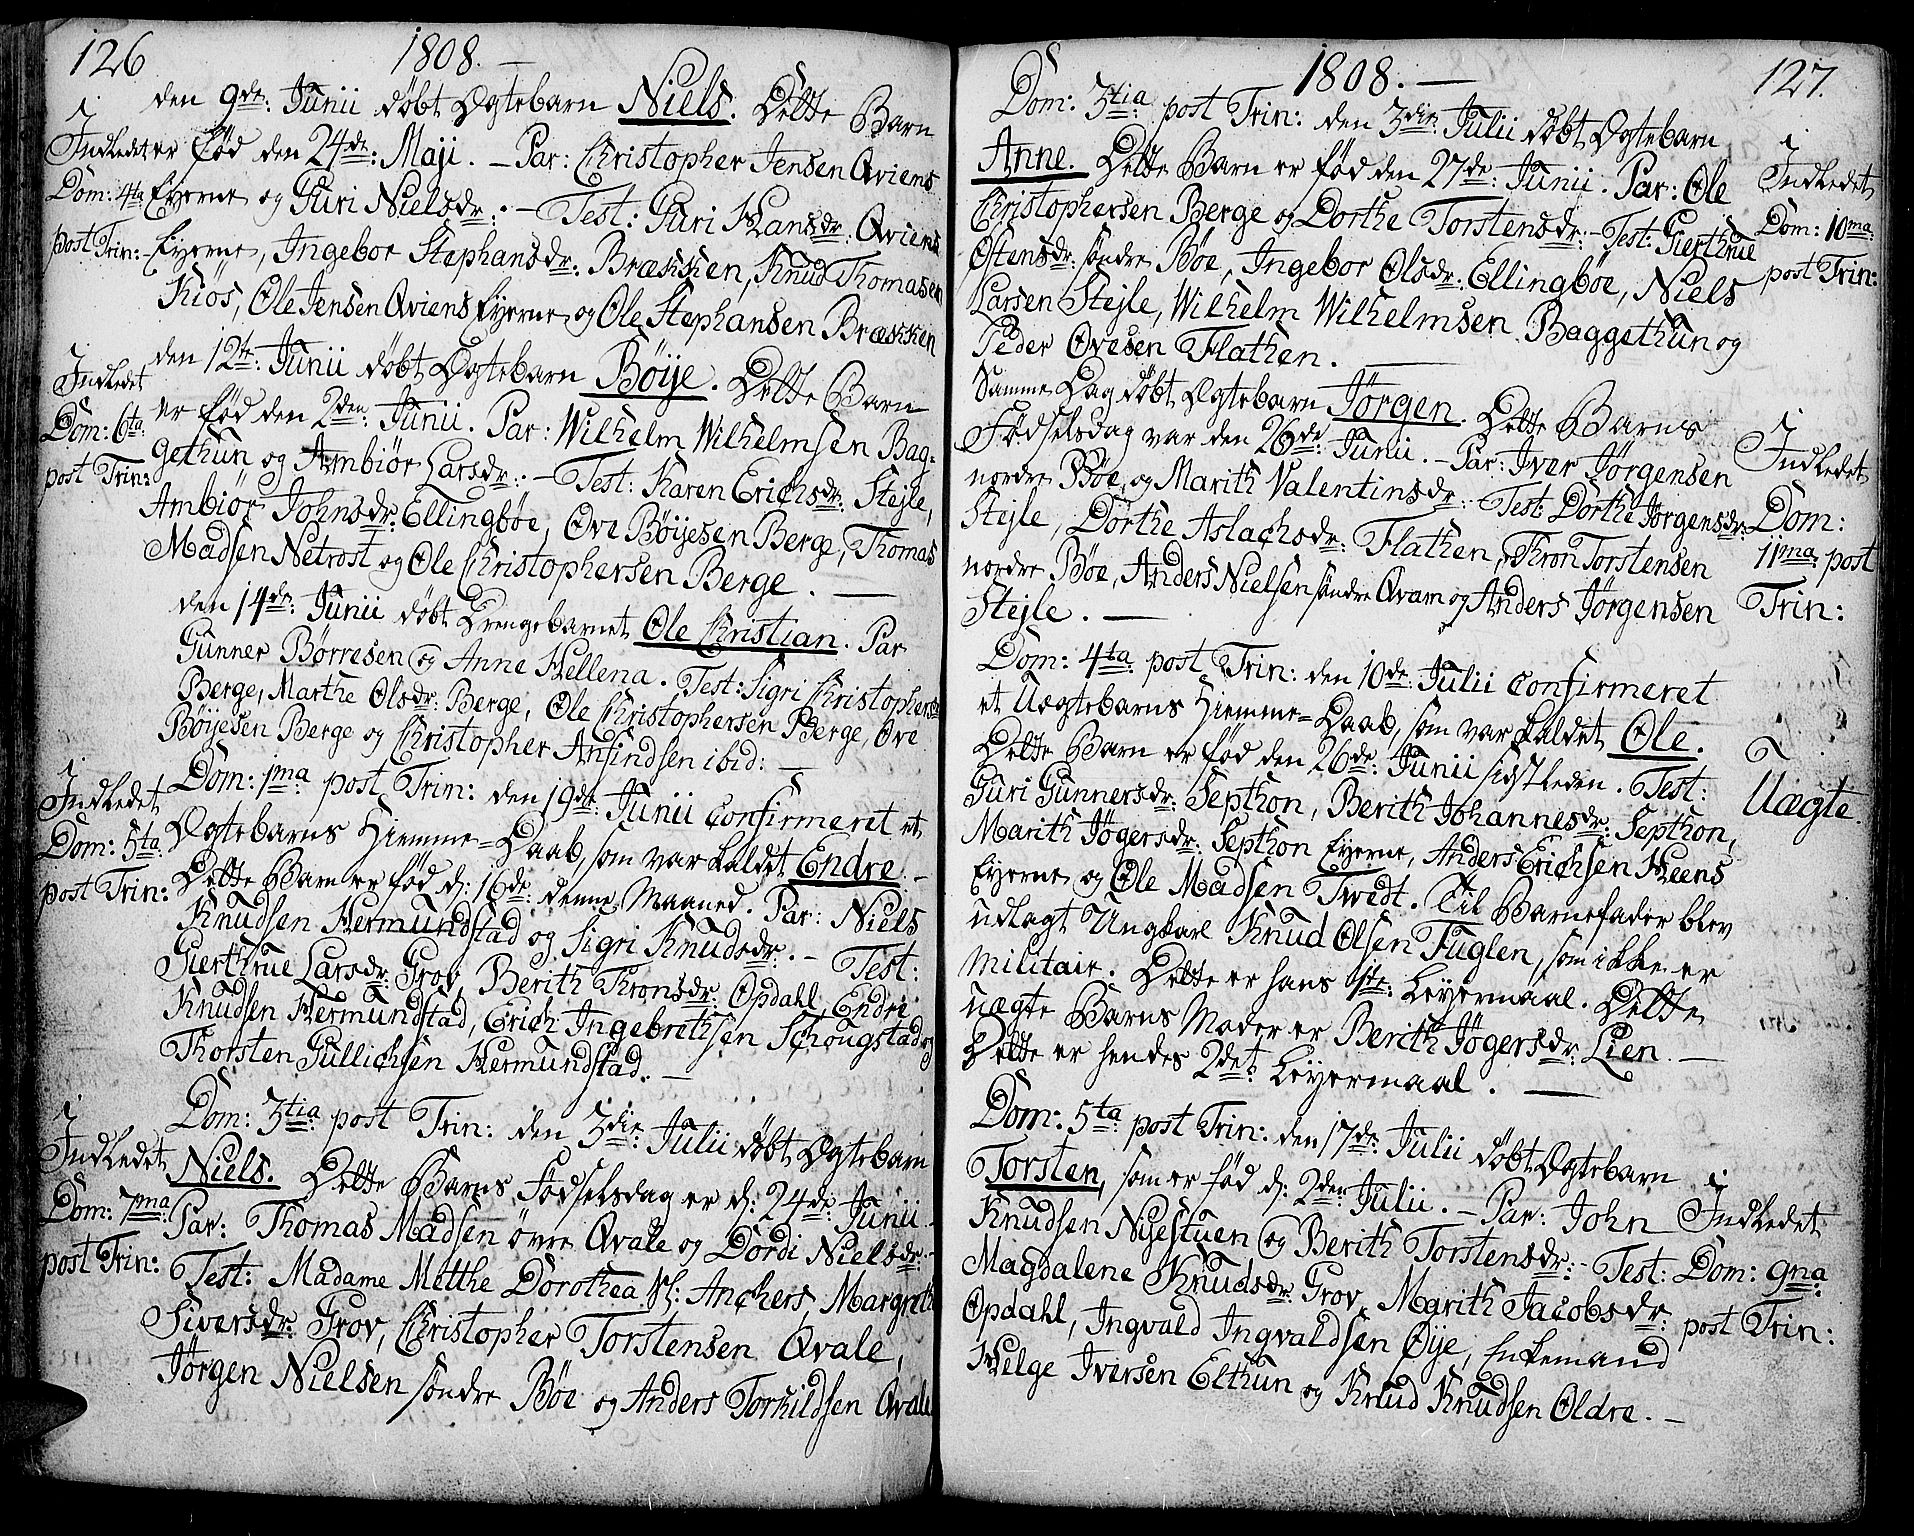 126
1808. —
den 9de: Junii døbt Ægtebarn Niels. Dette Barn
er fød den 24de: Maji. — Par: Christopher Jensen Qviens
Eyerne og Guri Nielsdr: — Test: Guri Hansdr: Qviens
Eyerne, Ingebor Stephansdr: Brækken, Knud Thomasen
Kiøs, Ole Jensen Qviens Eyerne og Ole Stephansen Brækken
Indledet
Dom: 4ta
post Trin:
den 12te: Junii døbt Ægtebarn Böije. Dette Barn
er fød den 2den: Junii. Par: Wilhelm Wilhelmsen Bag-
gethun og Ambiør Larsdr: — Test: Karen Erichsdr: Stejle,
Ambiør Johnsdr: Ellingbøe, Ove Böijesen Berge, Thomas
Madsen Netrost og Ole Christophersen Berge. —
Indledet
Dom: 6ta
post Trin:
den 14de: Junii døbt Drengebarnet Ole Christian. Par
Gunner Børresen og Anne Hellena. Test: Sigri Christophersdr
Berge, Marthe Olsdr: Berge, Ole Christophersen Berge, Ove
Böijesen Berge og Christopher Anfindsen ibid: —
Dom: 1ma post Trin: den 19de: Junii confirmeret et
Ægtebarns Hiemme-Daab, som var kaldet Endre. —
Dette Barn er fød d: 16de: denne Maaned. Par: Niels
Knudsen Hermundstad og Sigri Knudsdr: — Test:
Gierthrue Larsdr: Grov, Berith Thronsdr: Opdahl, Endri
Knudsen Hermundstad, Erich Ingebrethsen Schougstad og
Thorsten Gullichsen Hermundstad. —
Indledet
Dom: 5ta
post Trin:
Dom: 3tia post Trin: den 3die: Julii døbt Ægtebarn
Niels. Dette Barns Fødselsdag er d: 24de: Junii —
Par: Thomas Madsen øvre Qvale og Dordi Nielsdr: —
Test: Madame Metthe Dorothea Sl: Anchers, Margrethe
Siversdr: Grov, Christopher Torstensen Qvale,
Jørgen Nielsen søndre Bøe og Anders Torkildsen Qvale
Indledet
Dom: 7ma
post Trin:
1808. —
127.
Dom: 3tia post Trin: den 3die: Julii døbt Ægtebarn
Anne. Dette Barn er fød den 27de: Junii. Par: Ole
Christophersen Berge og Dorthe Torstensdr: — Test: Gierthrue
Østensdr: søndre Bøe, Ingebor Olsdr: Ellingbøe, Niels
Larsen Stejle, Wilhelm Wilhelmsen Baggethun og
Peder Ovesen Flathen. —
Indledet
Dom: 10ma:
post Trin:
Samme Dag døbt Ægtebarn Jørgen. Dette Barns
Fødselsdag var den 26de: Junii. — Par: Iver Jørgensen
nordre Bøe og Marith Valentinsdr: — Test: Dorthe Jørgensdr:
Stejle, Dorthe Aslachsdr: Flathen, Thron Torstensen
nordre Bøe, Anders Nielsen søndre Qvam og Anders Jørgensen
Stejle. —
Indledet
Dom:
11ma post
Trin:
Dom: 4ta post Trin: den 10de: Julii confirmeret
et Uægtebarns Hiemme-Daab, som var kaldet Ole.
Dette Barn er fød den 26de: Junii sidstleden. Test:
Guri Gunnersdr: Septhon, Berith Johannesdr: Septhon,
Marith Jøgersdr: Septhon Eyerne, Anders Erichsen Heens
Eyerne og Ole Madsen Twedt. Til Barnefader blev
udlagt Ungkarl Knud Olsen Fuglen, som ikke er
Militair. Dette er hans 1ste: Leyermaal. Dette
uægte Barns Moder er Berith Jøgersdr: Lien. —
Dette er hendes 2det: Leyermaal. —
Uægte.
Dom: 5ta post Trin: den 17de: Julii døbt Ægtebarn
Torsten, som er fød d: 2den: Julii. — Par: John
Knudsen Nigestuen og Berith Torstensdr: — Test:
Magdalene Knudsdr: Grov, Marith Jacobsdr:
Opdahl, Ingvald Ingvaldsen Øije, Enkemand
Helge Iversen Elthun og Knud Knudsen Oldre. —
Indledet
Dom: 9na
post Trin: